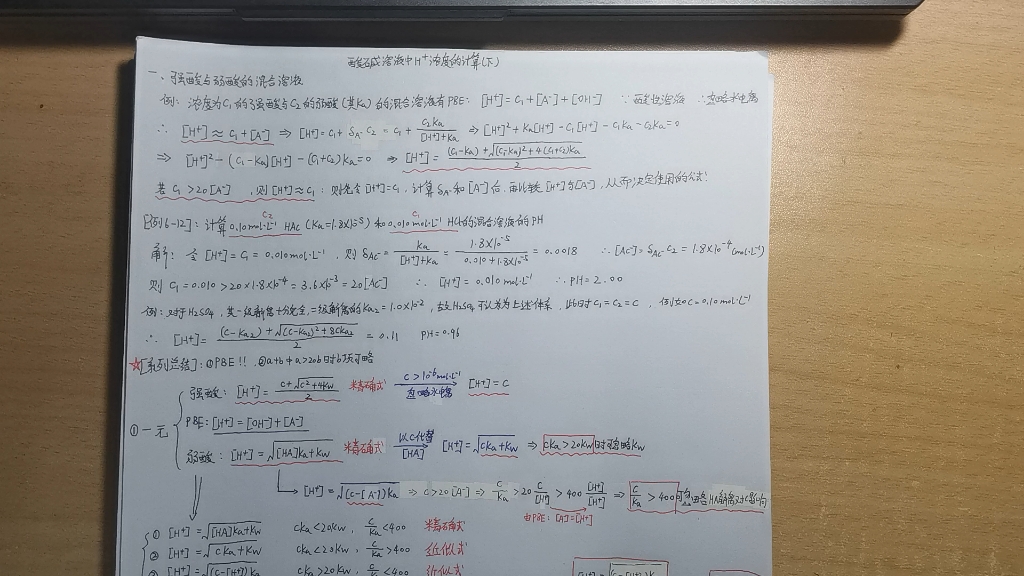 酸碱溶液中H⁺浓度的计算(下)
一、强酸与弱酸的混合溶液
例: 浓度为C₁的强酸与C₂的弱酸(其Ka)的混合溶液有PBE: [H⁺]=C₁+[A⁻]+[OH⁻] ∵酸性溶液 ∴忽略水电离
∴ [H⁺]≈C₁+[A⁻] ⇒ [H⁺]=C₁+δA⁻C₂=C₁+C₂Ka/([H⁺]+Ka) ⇒ [H⁺]²+Ka[H⁺]-C₁[H⁺]-C₁Ka-C₂Ka=0
⇒ [H⁺]²-(C₁-Ka)[H⁺]-(C₁+C₂)Ka=0 ⇒ [H⁺]=((C₁-Ka)+√((C₁-Ka)²+4(C₁+C₂)Ka))/2
若C₁>20[A⁻], 则[H⁺]≈C₁; 则先令[H⁺]=C₁, 计算δA⁻和[A⁻]后, 再比较[H⁺]与[A⁻], 从而决定使用的公式
C₂ C₁
[例6-12]: 计算0.10mol·L⁻¹ HAc (Ka=1.8×10⁻⁵)和0.010mol·L⁻¹ HCl的混合溶液的PH
解: 令[H⁺]=C₁=0.010mol·L⁻¹, 则δAc⁻=Ka/([H⁺]+Ka)=1.8×10⁻⁵/(0.010+1.8×10⁻⁵)=0.0018 ∴[Ac⁻]=δAc⁻C₂=1.8×10⁻⁴(mol·L⁻¹)
则C₁=0.010>20×1.8×10⁻⁴=3.6×10⁻³=20[Ac⁻] ∴ [H⁺]=0.010mol·L⁻¹ ∴PH=2.00
例: 对于H₂SO₄, 其一级解离十分完全, 二级解离的Ka₂=1.0×10⁻², 故H₂SO₄可认为为上述体系, 此时C₁=C₂=C, 例如C=0.10mol·L⁻¹
∴ [H⁺]=((C-Ka₂)+√((C-Ka₂)²+8CKa₂))/2=0.11 PH=0.96
☆[系列总结]: ①PBE!! ②a+b中a>20b时b项可略
强酸: [H⁺]=(C+√(C²+4Kw))/2 精确式 C>10⁻⁶mol·L⁻¹ 忽略水电离 → [H⁺]=C
①一元 PBE: [H⁺]=[OH⁻]+[A⁻]
弱酸: [H⁺]=√([HA]Ka+Kw) 精确式 以C代替[HA] → [H⁺]=√(CKa+Kw) ⇒ CKa>20Kw时可忽略Kw
[H⁺]=√((C-[A⁻])Ka) ⇒ C>20[A⁻] ⇒ C/Ka>20 C/[H⁺]>400 [H⁺]/[H⁺] ⇒ C/Ka>400可忽略HA解离对C影响
由PBE: [A⁻]=[H⁺]
① [H⁺]=√([HA]Ka+Kw) CKa<20Kw, C/Ka<400 精确式
② [H⁺]=√(CKa+Kw) CKa<20Kw, C/Ka>400 近似式
[H⁺]=√((C-[H⁺])Ka) CKa>20Kw, C/Ka<400 近似式